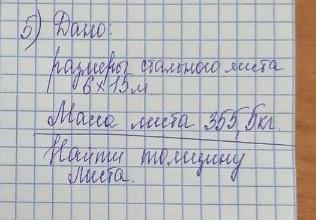 5) Дано:
размеры стального листа
6×15 м.
Масса листа 355,5 кг.
Найти толщину
листа.